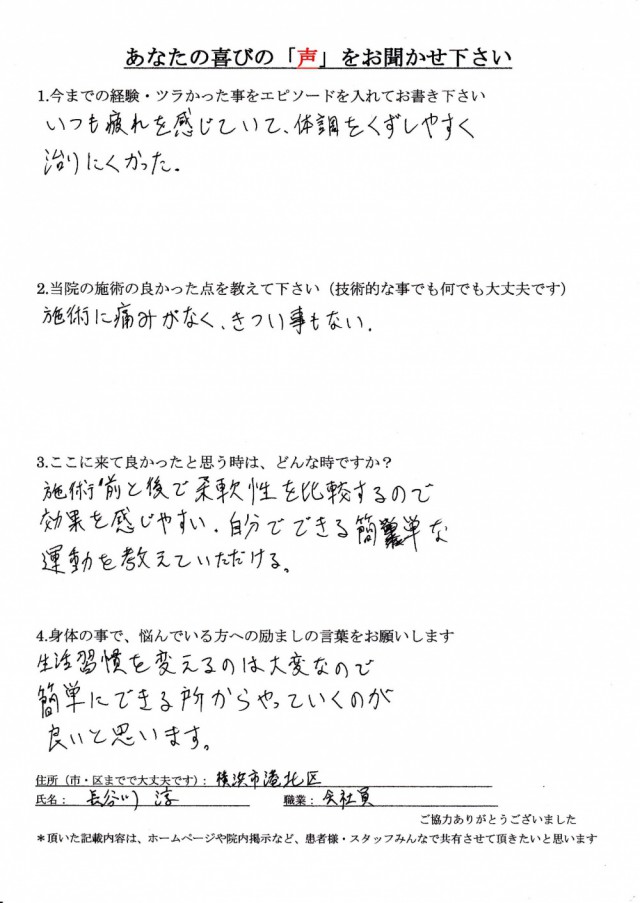 あなたの喜びの「声」をお聞かせ下さい
1.今までの経験・ツラかった事をエピソードを入れてお書き下さい
いつも疲れを感じていて、体調をくずしやすく
治りにくかった.
2.当院の施術の良かった点を教えて下さい（技術的な事でも何でも大丈夫です）
施術に痛みがなく、きつい事もない.
3.ここに来て良かったと思う時は、どんな時ですか？
施術前と後で柔軟性を比較するので
効果を感じやすい.自分でできる簡単な
運動を教えていただける。
4.身体の事で、悩んでいる方への励ましの言葉をお願いします
生活習慣を変えるのは大変なので
簡単にできる所からやっていくのが
良いと思います。
住所（市・区までで大丈夫です）：横浜市港北区
氏名： 長谷川 淳 職業：会社員
ご協力ありがとうございました
＊頂いた記載内容は、ホームページや院内掲示など、患者様・スタッフみんなで共有させて頂きたいと思います